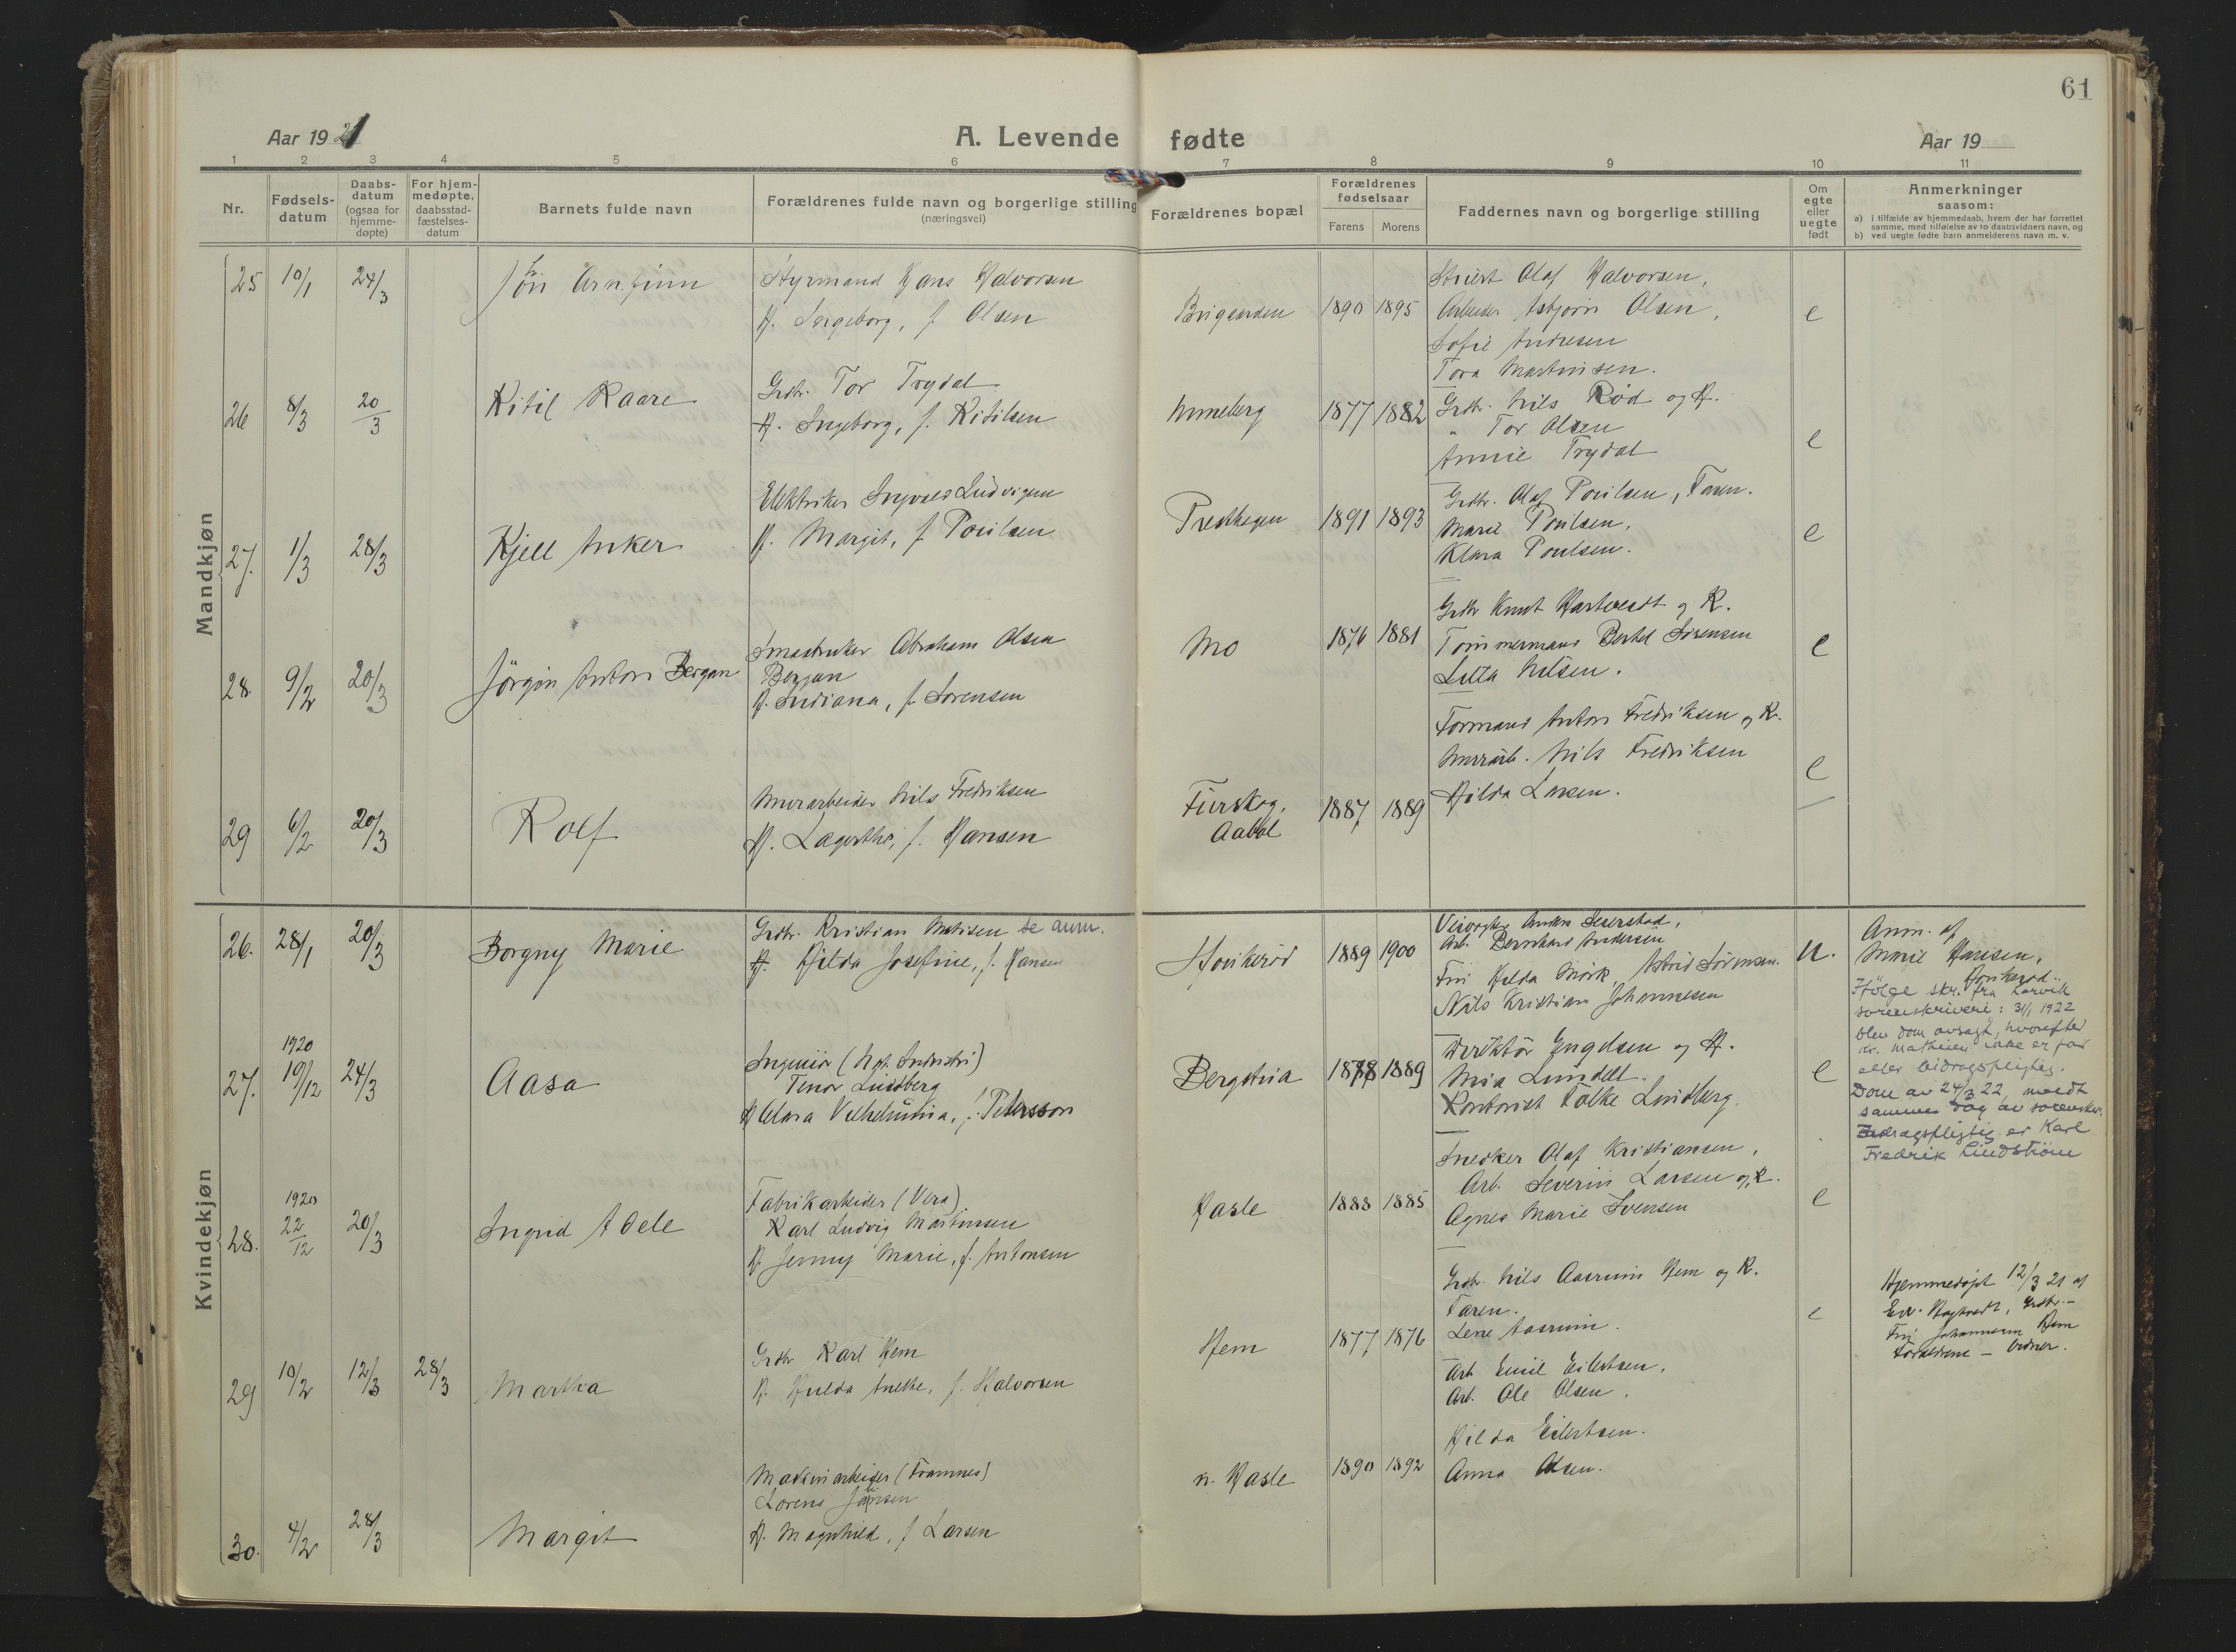 61
Aar 1921
A. Levende fødte
Aar 19
1 2 3 4 5 6 7 8 9 10 11
Nr.
Fødsels-
datum
Daabs-
datum
(ogsaa for
hjemme-
døpte)
For hjem-
medøpte.
daabsstad-
fæstelses-
datum
Barnets fulde navn
Forældrenes fulde navn og borgerlige stilling
(næringsvei)
Forældrenes bopæl
Forældrenes
fødselsaar
Farens Morens
Faddernes navn og borgerlige stilling
Om
egte
eller
uegte
født
Anmerkninger
saasom:
a) i tilfælde av hjemmedaab, hvem der har forrettet
samme, med tilføielse av to daabsvidners navn, og
b) ved uegte fødte barn anmelderens navn m. v.
Mandkjøn
25 10/1 24/3
Arnfinn
Styrmand Hans Halvorsen
H. Ingeborg, f. Olsen
1890 1895
Olaf Halvorsen,
Arbeider Asbjørn Olsen,
Sofie Andresen
Tora Martinsen.
e
26 8/3 20/3
Kitil Kaare
Grdbr. Tor Trydal
H. Ingeborg, f. Kitilsen
Unneberg
1877 1882
Grdbr. Nils Rød og H.
" Tor Olsen
Annie Trydal
e
27. 1/3 28/3
Kjell Anker
Elektriker Ingvald Ludvigsen
H. Margit, f. Poulsen
Presthagen
1891 1893
Grdbr. Olaf Poulsen, Faren.
Marie Poulsen,
Klara Poulsen.
e
28. 9/2 20/3
Jörgen Anton Bergan
Smaabruker Abraham Olsen
Bergan
H. Indiana, f. Sörensen
Mo
1876 1881
Grdbr Knut Hartvedt og K.
Tømmermand Bertel Sörensen
Nilsen.
e
29 6/2 20/3
Rolf
Murarbeider Nils Fredriksen
H. Lagertha, f. Hansen
Furskog,
1887 1889
Formand Anton Fredriksen og K.
Murarb. Nils Fredriksen
Hilda Larsen.
e
Kvindekjøn
26. 28/1 20/3
Borgny Marie
Grdbr. Kristian Matisen se anm.
H. Hilda Josefine, f. Hansen
1889 1900
Arb. Bernhard Andersen
Hilda Mörk, Astrid Sörensen.
Nils Kristian Johannesen
u.
Anm. af
Marie Hansen,
Ifölge skr. fra Larvik
sorenskriveri: 31/1 1922
blev dom avsagt, hvorefter
kr. Mathisen ikke er far
eller bidragspligtig.
Dom av 24/3 22, meldt
samme dag av sorenskr.
Bidragspligtig er Karl
Fredrik Lindström
27. 1920
19/12 24/3
Aasa
Ingeniör (Not. Industri)
Tenor Lindberg
H. Clara Vilhelmina, f. Petersson
1878 1889
Direktör Engelsen og H.
Mia Lundell.
Kontorist Folke Lindberg.
e
28. 1920
22/12 20/3
Ingrid Adele
Fabrikarbeider (Vera)
Karl Ludvig Martinsen
H. Jenny Marie, f. Antonsen
Hasle
1888 1885
Snedker Olaf Kristiansen,
Arb. Severin Larsen og K.
Agnes Marie Svensen
e
29 10/2 12/3 28/3
Martha
Grdbr Karl Hem
H. Hulda Anette, f. Halvorsen
Hem
1877 1876
Grdbr. Nils Aasrum Hem og K.
Faren.
Lene Aasrum.
e
Hjemmedöpt 12/3 21 af
Johannesen Hem
Foreldrene - Vidner.
30. 4/2 28/3
Margit
Maskinarbeider (Framnes)
Lorens Jansen
H. Magnhild, f. Larsen
n. Hasle
1890 1892
Arb. Emil Eilertsen.
Arb. Ole Olsen.
Hilda Eilertsen.
Anna Olsen.